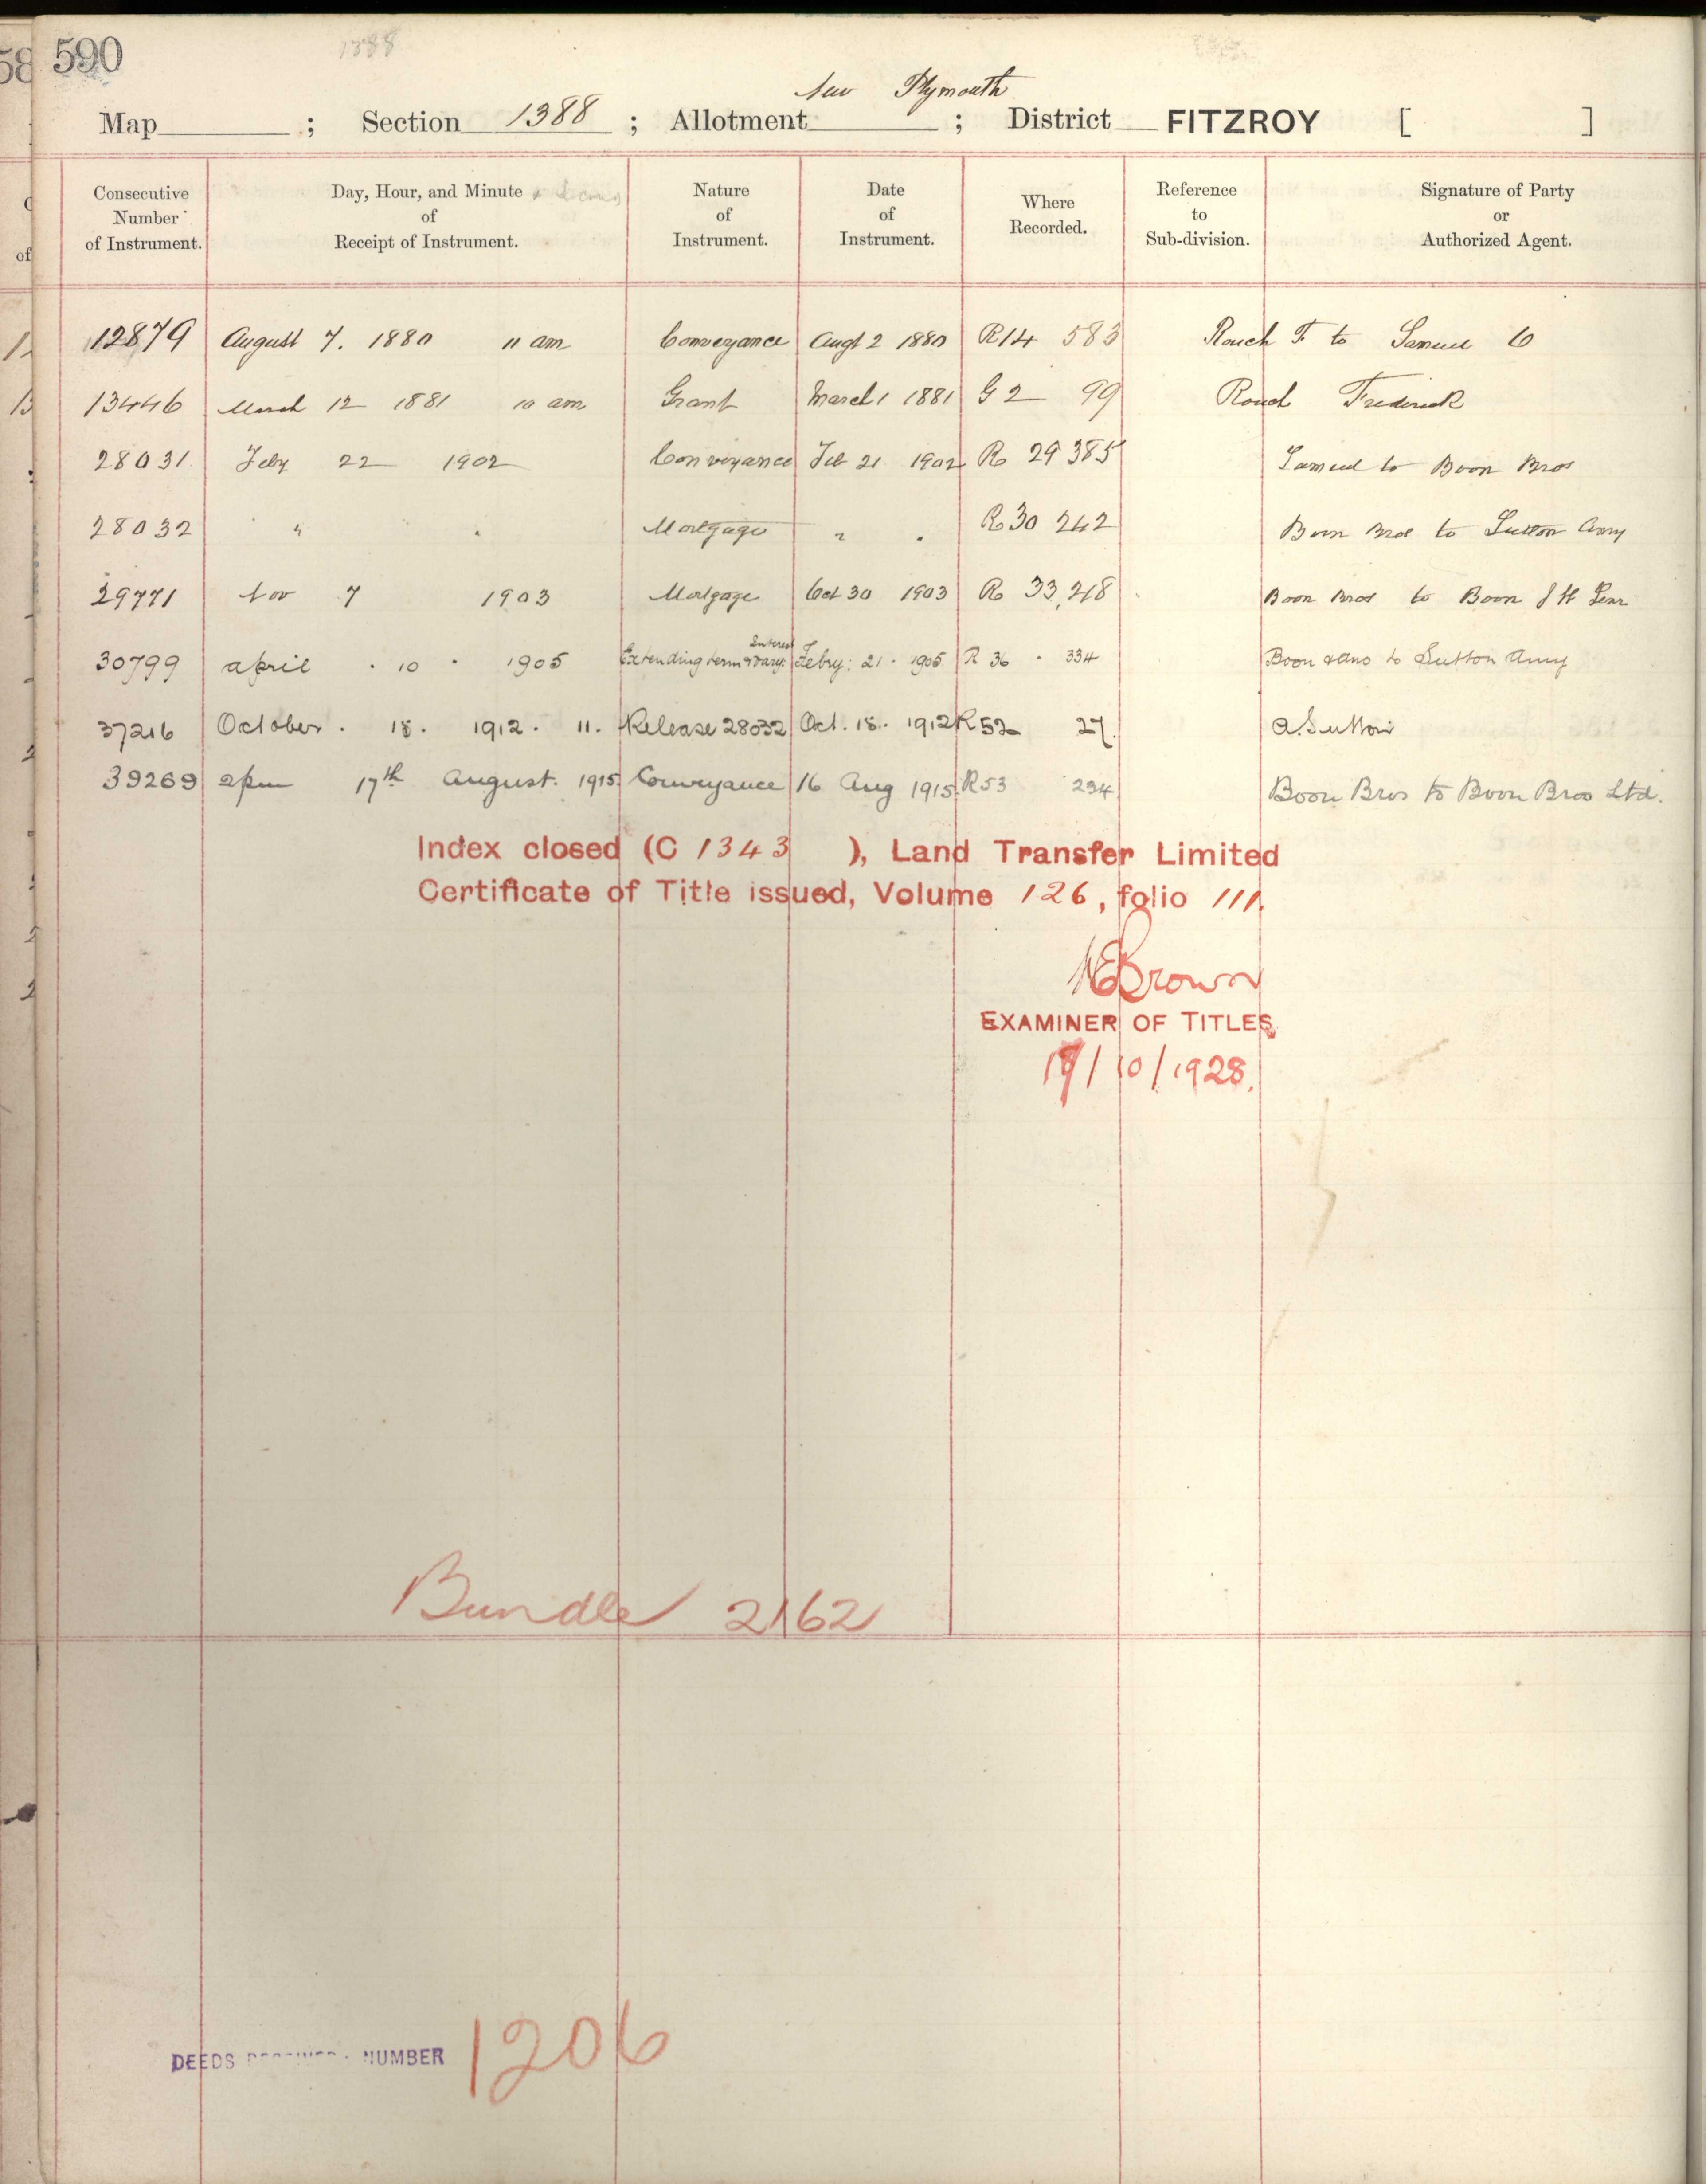 590
1388
New Plymouth
Map ; Section 1388 ; Allotment ; District FITZROY [ ]
Consecutive Number of Instrument. Day, Hour, and Minute of Receipt of Instrument. Nature of Instrument. Date of Instrument. Where Recorded. Reference to Sub-division. Signature of Party or Authorized Agent.
12879 August 7. 1880 11 am Conveyance Augt 2 1880 R14 583 Rouch F. to Samuel O
13446 March 12 1881 10 am Grant March 1 1881 G 2 99 Rouch Frederick
28031 Feby 22 1902 Conveyance Feb 21 1902 R 29 385 Samuel to Boon Bros
28032 " " Mortgage " " R 30 242 Boon Bros to Sutton Amy
29771 Nov 7 1903 Mortgage Oct 30 1903 R 33, 218 Boon Bros to Boon J H Senr
Interest
30799 April . 10 . 1905 Extending term & vary. Febry: 21 . 1905 R 36 . 334 Boon & ano to Sutton Amy
37216 October . 18 . 1912 . 11 . Release 28032 Oct. 18 . 1912 R 52 27. A. Sutton
39269 2pm 17th August. 1915 Conveyance 16 Aug 1915 R53 294 Boon Bros to Boon Bros Ltd.
Index closed (C 1343 ), Land Transfer Limited
Certificate of Title issued, Volume 126, folio 111.
Brown
EXAMINER OF TITLES
/10/1928.
Bundle 2162
DEEDS NUMBER 1206